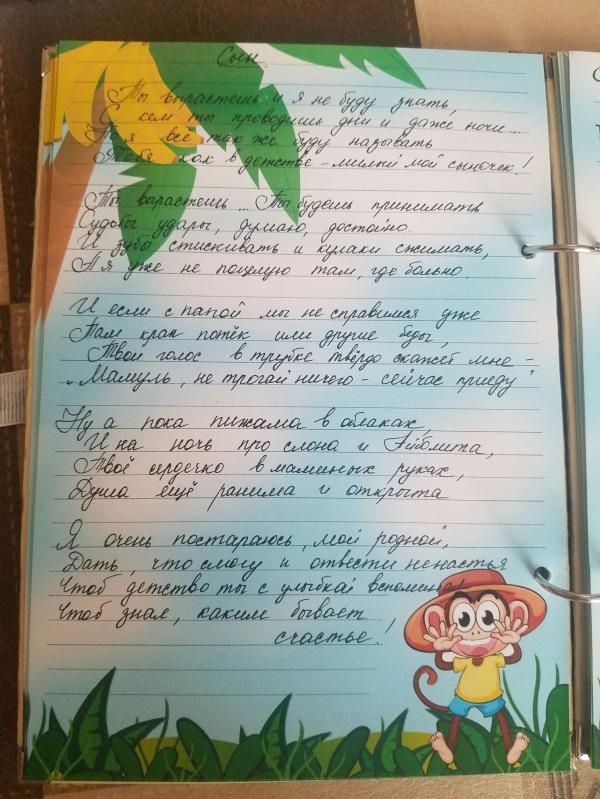 Сын.
Ты вырастешь и я не буду знать,
С кем ты проводишь дни и даже ночи...
И я всё так же буду называть
Тебя как в детстве - милый мой сыночек!
Ты вырастешь... Ты будешь принимать
Судьбы удары, думаю, достойно.
И зубы стискивать и кулаки сжимать,
А я уже не поцелую там, где больно.
И если с папой мы не справимся уже
Там кран потёк или другие беды,
Твой голос в трубке твёрдо скажет мне -
"Мамуль, не трогай ничего - сейчас приеду"
Ну а пока пижама в облаках,
И на ночь про слона и Айболита,
Твоё сердечко в маминых руках,
Душа ещё ранима и открыта
Я очень постараюсь, мой родной,
Дать, что смогу и отвести ненастья
Чтоб детство ты с улыбкой вспоминал
Чтоб знал, каким бывает
счастье!